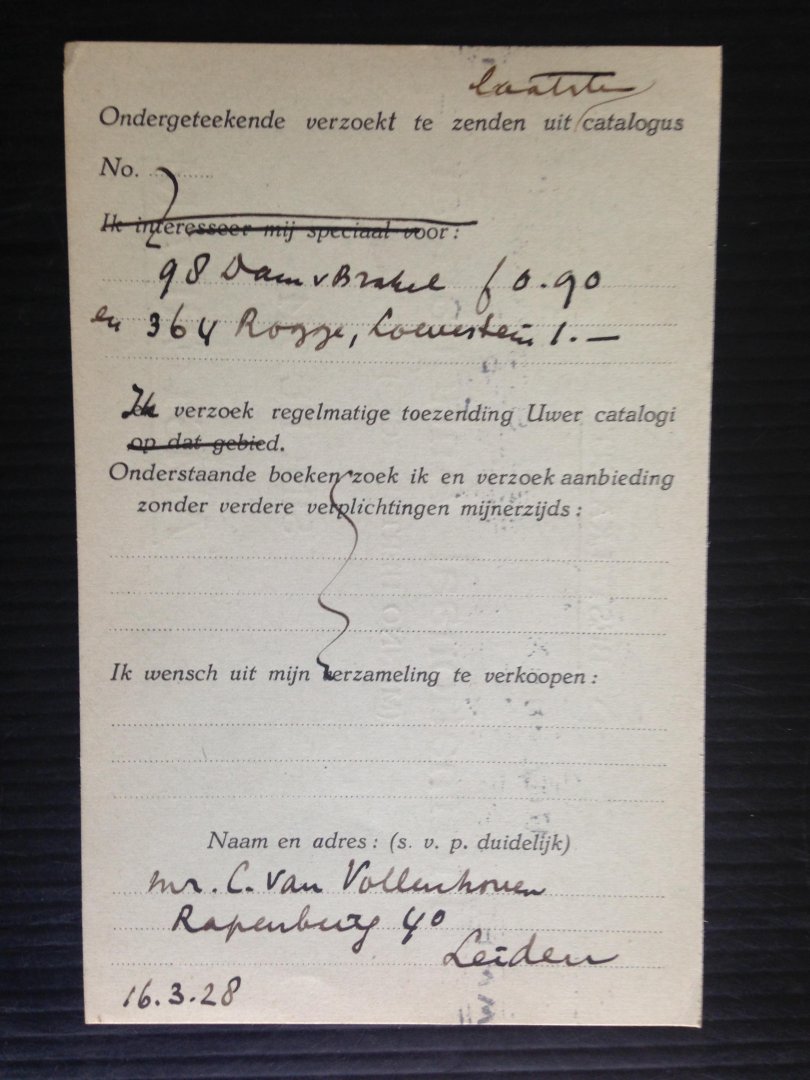 laatste
Ondergeteekende verzoekt te zenden uit catalogus
No. ............
Ik interesseer mij speciaal voor:
98 Dam v Brakel f 0.90
en 364 Rogge, Loevestein 1.—
Ik verzoek regelmatige toezending Uwer catalogi
op dat gebied.
Onderstaande boeken zoek ik en verzoek aanbieding
zonder verdere verplichtingen mijnerzijds:
Ik wensch uit mijn verzameling te verkoopen:
Naam en adres: (s. v. p. duidelijk)
mr. C. van Vollenhoven
Rapenburg 40
Leiden
16.3.28